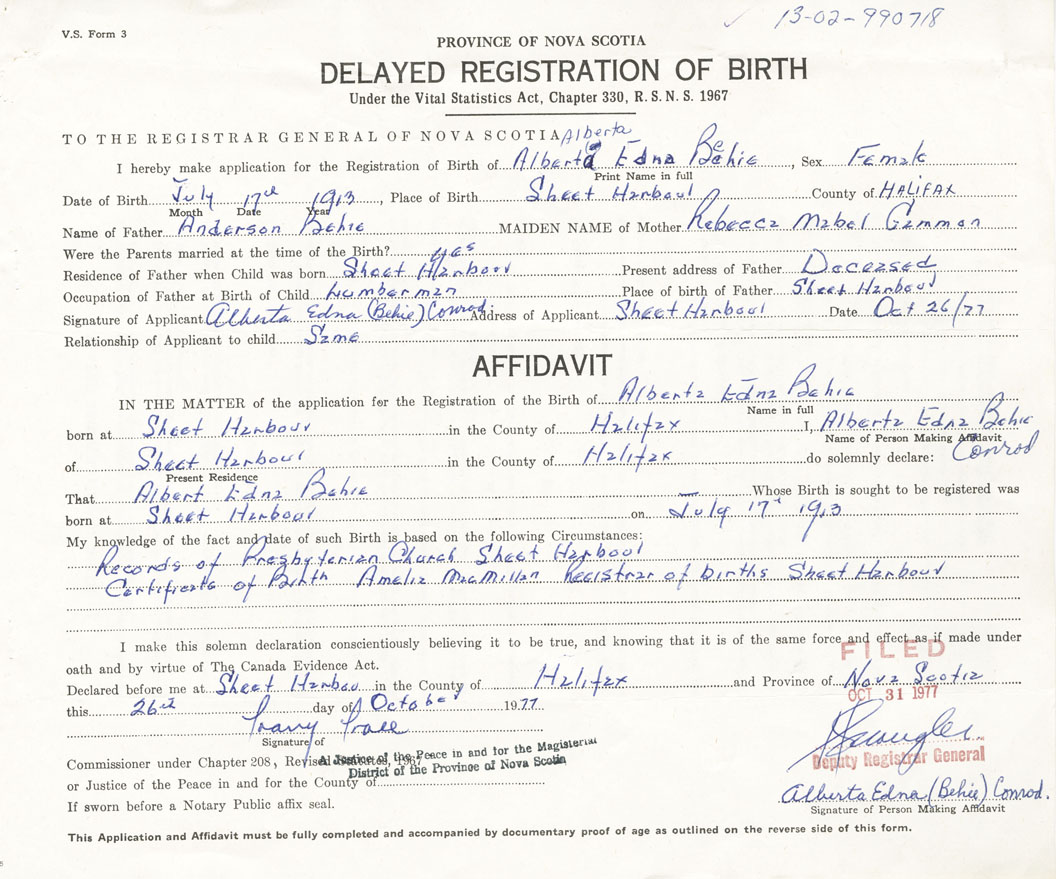 13-02-990718
V.S. Form 3
PROVINCE OF NOVA SCOTIA
DELAYED REGISTRATION OF BIRTH
Under the Vital Statistics Act, Chapter 330, R. S. N. S. 1967
TO THE REGISTRAR GENERAL OF NOVA SCOTIA Alberta
I hereby make application for the Registration of Birth of Alberta Edna Behie, Sex Female
Print Name in full
Date of Birth July 17th 1913, Place of Birth Sheet Harbour County of HALIFAX
Month Date Year
Name of Father Anderson Behie MAIDEN NAME of Mother Rebecca Mabel Gammon
Were the Parents married at the time of the Birth? yes
Residence of Father when Child was born Sheet Harbour Present address of Father Deceased
Occupation of Father at Birth of Child Lumberman Place of birth of Father Sheet Harbour
Signature of Applicant Alberta Edna (Behie) Conrod. Address of Applicant Sheet Harbour Date Oct 26/77
Relationship of Applicant to child Same
AFFIDAVIT
IN THE MATTER of the application for the Registration of the Birth of Alberta Edna Behie
Name in full
born at Sheet Harbour in the County of Halifax I, Alberta Edna Behie
Name of Person Making Affidavit
of Sheet Harbour in the County of Halifax do solemnly declare: Conrod
Present Residence
That Albert Edna Behie Whose Birth is sought to be registered was
born at Sheet Harbour on July 17th 1913
My knowledge of the fact and date of such Birth is based on the following Circumstances:
Records of Presbyterian Church Sheet Harbour
Certificate of Birth Amelia MacMillan Registrar of births Sheet Harbour
I make this solemn declaration conscientiously believing it to be true, and knowing that it is of the same force and effect as if made under
oath and by virtue of The Canada Evidence Act.
FILED
Declared before me at Sheet Harbou in the County of Halifax and Province of Nova Scotia
OCT 31 1977
this 26th day of October 1977
Signature of
Commissioner under Chapter 208, Revised Statutes, 1967
A Justice of the Peace in and for the Magisterial
District of the Province of Nova Scotia
Deputy Registrar General
or Justice of the Peace in and for the County of
Alberta Edna (Behie) Conrod.
Signature of Person Making Affidavit
If sworn before a Notary Public affix seal.
This Application and Affidavit must be fully completed and accompanied by documentary proof of age as outlined on the reverse side of this form.